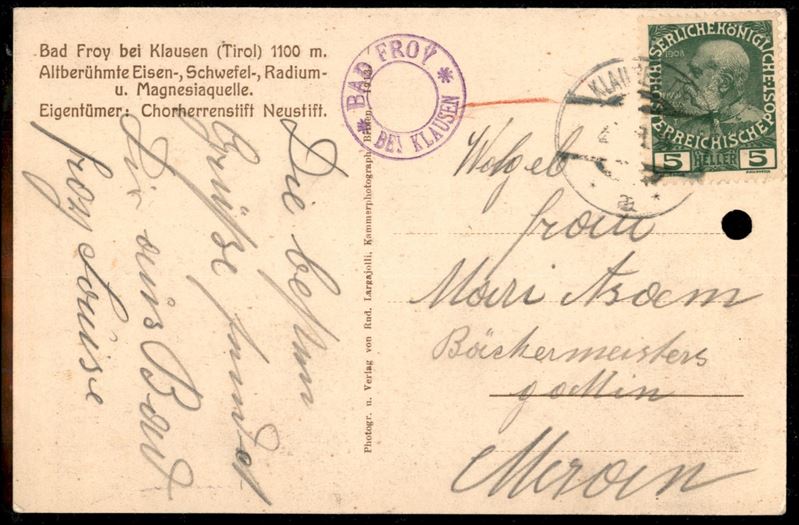 Bad Froy bei Klausen (Tirol) 1100 m.
Altberühmte Eisen-, Schwefel-, Radium-
u. Magnesiaquelle.
Eigentümer: Chorherrenstift Neustift.
Die besten
Grüße sendet
Dir aus Bad
froy Louise
Photogr. u. Verlag von Rud. Largajolli, Kammerphotograph, Brixen
* BAD FROY *
BEI KLAUSEN
KLAU
a
1908
KAISERLICHEKÖNIGLICHE
ÖSTERREICHISCHE POST
5 HELLER 5
Wolgeb
frau
Mari
Bäckermeisters
gattin
Meran